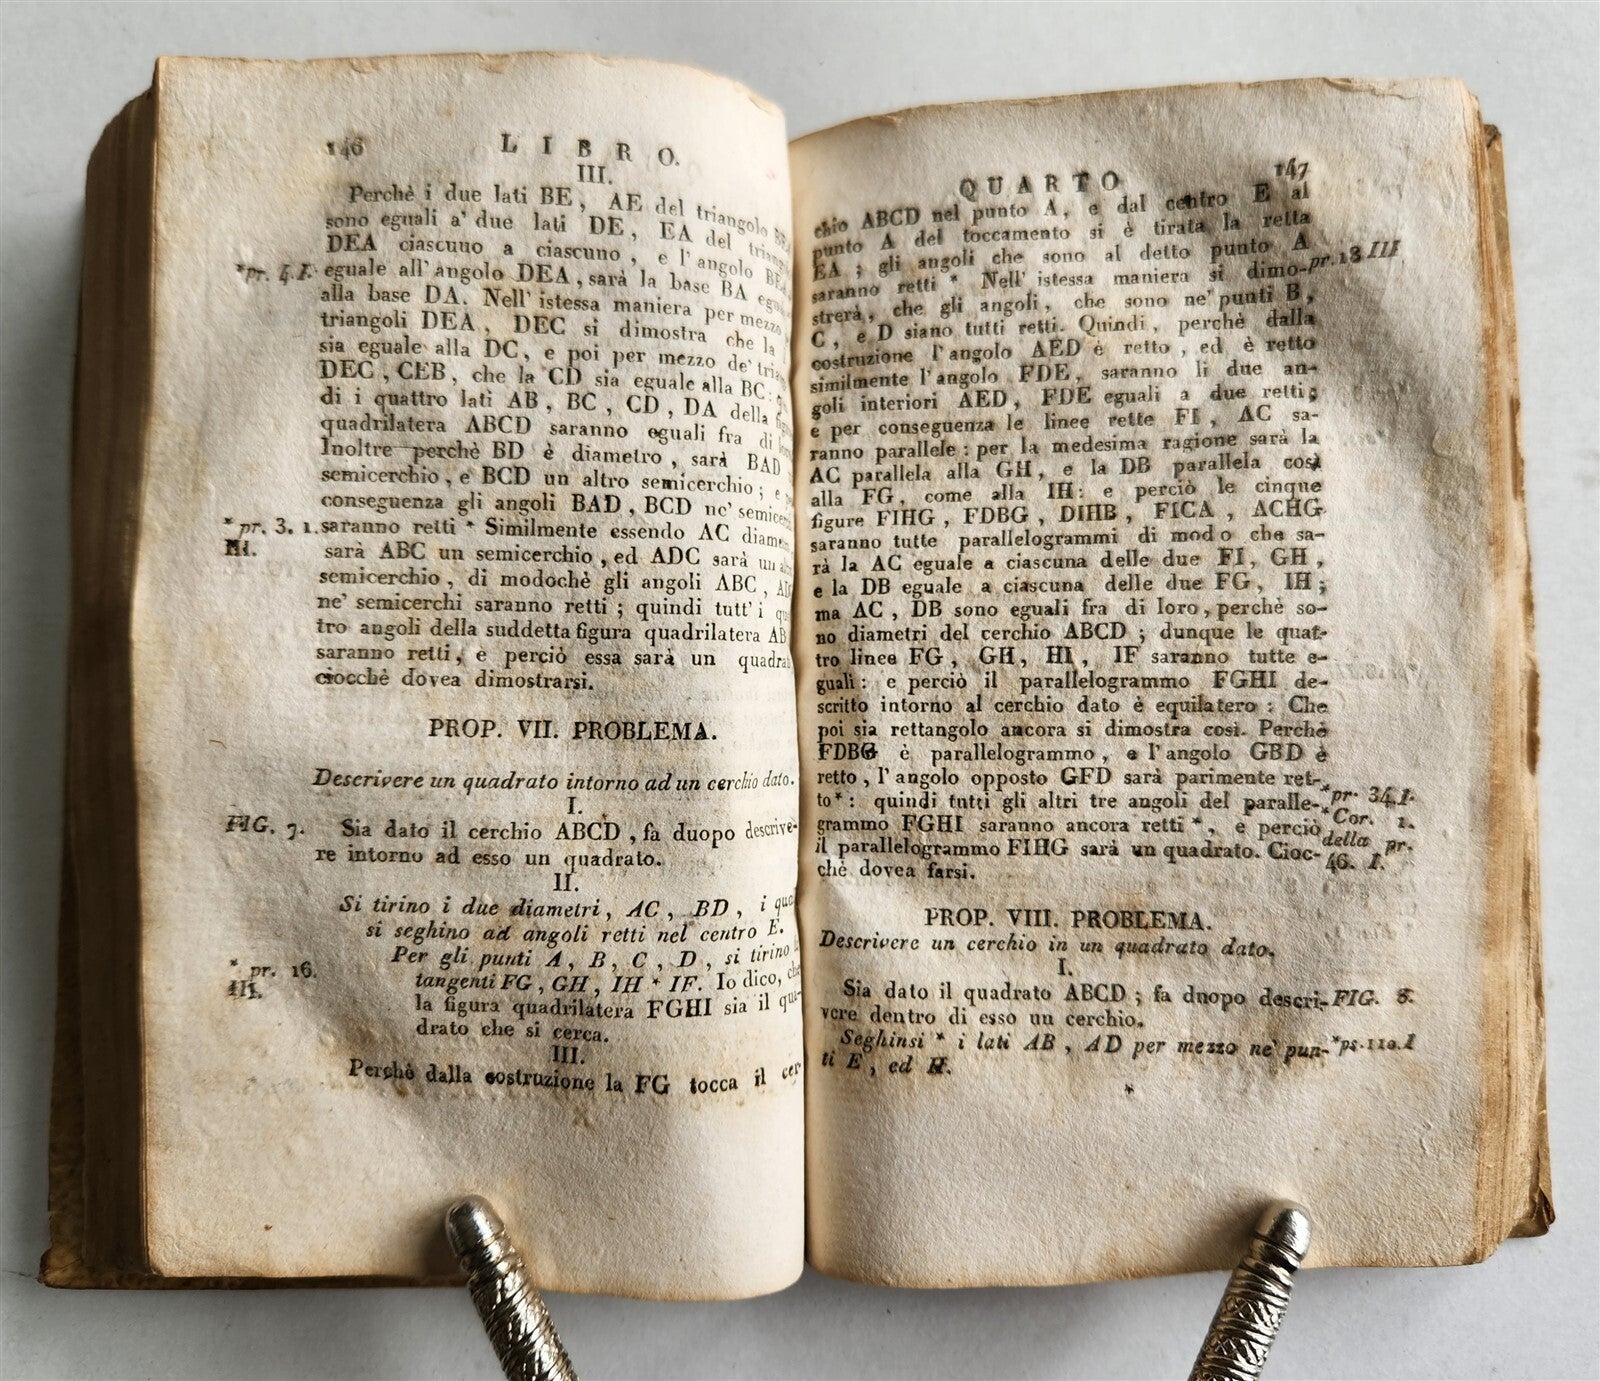 146
LIBRO.
III.
Perchè i due lati BE, AE del triangolo
sono eguali a' due lati DE, EA del
DEA ciascuno a ciascuno, e l'angolo
*pr. 4.I. eguale all'angolo DEA, sarà la base BA
alla base DA. Nell'istessa maniera per mezzo
triangoli DEA, DEC si dimostra che la
sia eguale alla DC, e poi per mezzo de'
DEC, CEB, che la CD sia eguale alla BC:
di i quattro lati AB, BC, CD, DA della
quadrilatera ABCD saranno eguali fra di
Inoltre perchè BD è diametro, sarà BAD
semicerchio, e BCD un altro semicerchio;
conseguenza gli angoli BAD, BCD ne'
*pr. 3. 1. saranno retti * Similmente essendo AC
III. sarà ABC un semicerchio, ed ADC sarà un
semicerchio, di modochè gli angoli ABC,
ne' semicerchi saranno retti; quindi tutt' i
tro angoli della suddetta figura quadrilatera
saranno retti, e perciò essa sarà un
ciocchè dovea dimostrarsi.
PROP. VII. PROBLEMA.
Descrivere un quadrato intorno ad un cerchio dato.
I.
FIG. 7. Sia dato il cerchio ABCD, fa duopo descrive-
re intorno ad esso un quadrato.
II.
Si tirino i due diametri, AC, BD, i
si seghino ad angoli retti nel centro E.
Per gli punti A, B, C, D, si tirino
* pr. 16. tangenti FG, GH, IH * IF. Io dico,
III. la figura quadrilatera FGHI sia il qua-
drato che si cerca.
III.
Perchè dalla costruzione la FG tocca il cer-
QUARTO
147
chio ABCD nel punto A, e dal centro E al
punto A del toccamento si è tirata la retta
EA; gli angoli che sono al detto punto A
saranno retti * Nell' istessa maniera si dimo- pr. 18 III
strerà, che gli angoli, che sono ne' punti B,
C, e D siano tutti retti. Quindi, perchè dalla
costruzione l'angolo AED è retto, ed è retto
similmente l'angolo FDE, saranno li due an-
goli interiori AED, FDE eguali a due retti;
e per conseguenza le linee rette FI, AC sa-
ranno parallele: per la medesima ragione sarà la
AC parallela alla GH, e la DB parallela così
alla FG, come alla IH: e perciò le cinque
figure FIHG, FDBG, DIHB, FICA, ACHG
saranno tutte parallelogrammi di modo che sa-
rà la AC eguale a ciascuna delle due FI, GH,
e la DB eguale a ciascuna delle due FG, IH;
ma AC, DB sono eguali fra di loro, perchè so-
no diametri del cerchio ABCD; dunque le quat-
tro linee FG, GH, HI, IF saranno tutte e-
guali: e perciò il parallelogrammo FGHI de-
scritto intorno al cerchio dato è equilatero: Che
poi sia rettangolo ancora si dimostra così. Perchè
FDBG è parallelogrammo, e l'angolo GBD è
retto, l'angolo opposto GFD sarà parimente ret-
to*: quindi tutti gli altri tre angoli del paralle- *pr. 34.I.
grammo FGHI saranno ancora retti *, e perciò *Cor. 1.
il parallelogrammo FIHG sarà un quadrato. Cioc- della pr.
chè dovea farsi. 46. I.
PROP. VIII. PROBLEMA.
Descrivere un cerchio in un quadrato dato.
I.
Sia dato il quadrato ABCD; fa duopo descri- FIG. 8.
vere dentro di esso un cerchio.
Seghinsi * i lati AB, AD per mezzo ne' pun-
ti E, ed H.